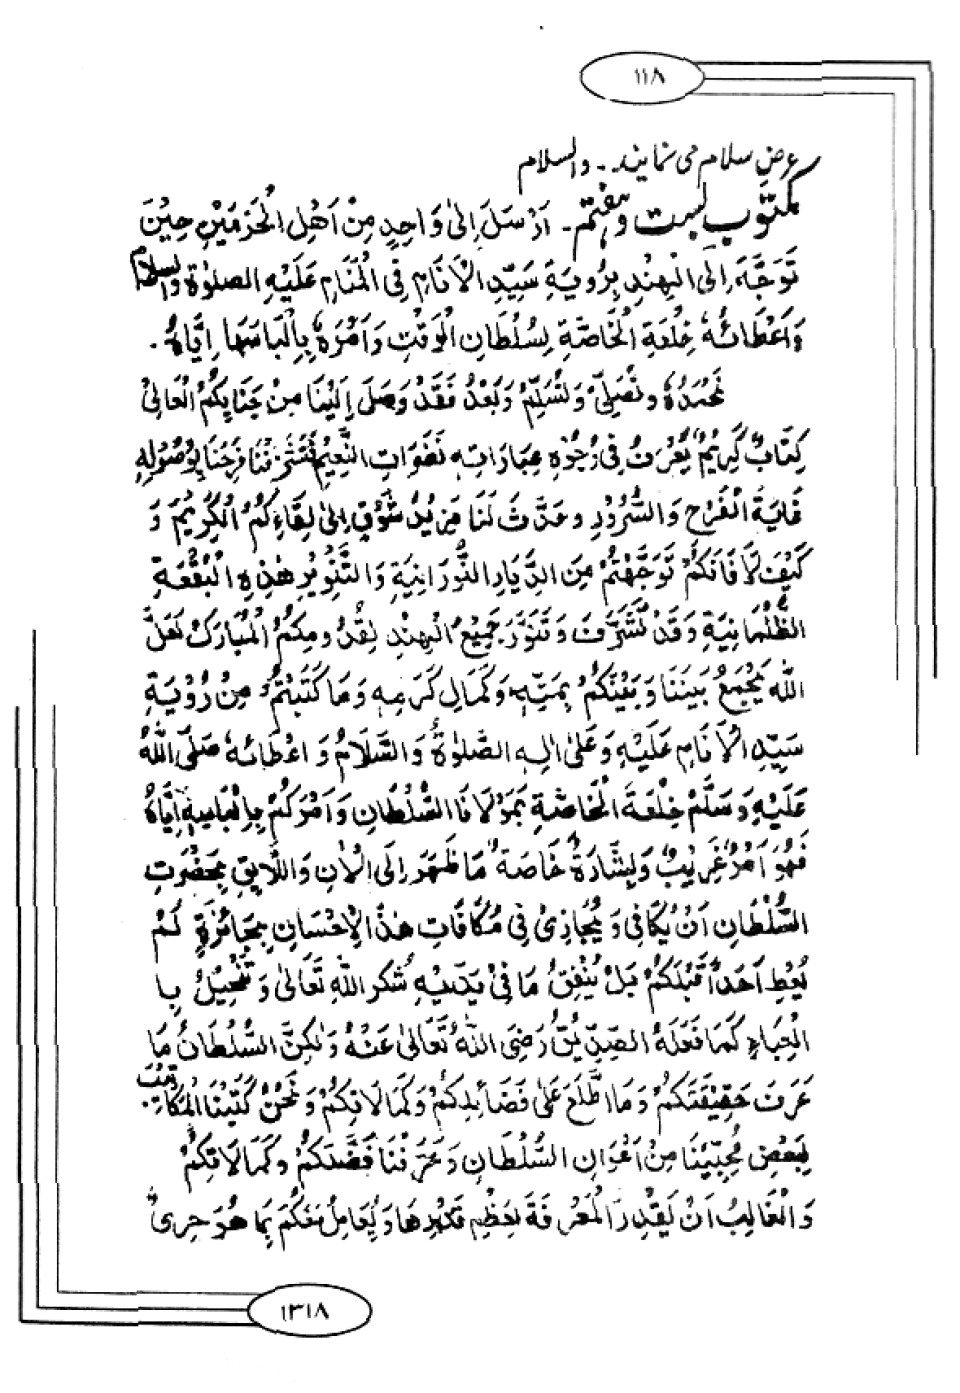 ١١٨
عرض سلام می نمایند۔ والسلام
مکتوب بست و ہفتم۔ اَرْسَلَ اِلیٰ وَاحِدٍ مِنْ اَھْلِ الْحَرَمَیْنِ حِیْنَ
تَوَجَّهَ اِلَی الْہِنْدِ بِرُویَةِ سَیِّدِ الْاَنَامِ فِی الْمَنَامِ عَلَیْهِ الصلوٰة والسلام
وَاَعْطَائُهٗ خِلْعَةَ الْخَاصَّةِ لِسُلْطَانِ الْوَقْتِ وَاَمْرَهٗ بِاِلْبَاسَهَا اِیَّاهُ.
نَحْمَدُهٗ ونُصَلِّیْ وَنُسَلِّمُ وَبَعْدُ فَقَدْ وَصَلَ اِلَیْنَا مِنْ جَنَابِکُمُ الْعَالِیْ
کِتَابٌ کَرِیْمٌ یُعْرَفُ فِیْ وُجُوْهِ عِبَارَاتِهٖ نَضْرَاتِ النَّعِیْمِ فَتَشَرَّفْنَا فَرِحْنَا بِوُصُوْلِهٖ
غَایَةَ الْفَرْحِ وَالسُّرُوْرِ وحَدَثَ لَنَا مَزِیْدُ شَوْقٍ اِلیٰ لِقَاءِکُمُ الْکَرِیْمِ وَ
کَیْفَ لَا فَاَنَّکُمْ تَوَجَّهْتُمْ مِنَ الدِّیَارِ النُّوْرَانِیَةِ وَالتَّنْوِیْرِ هٰذِهِ الْبُقْعَةِ
الظُّلْمَانِیَةِ وَقَدْ تَشَرَّفَ وَتَنَوَّرَ جَمِیْعُ الْہِنْدِ بِقُدُوْمِکُمُ الْمُبَارَکْ لَعَلَّ
اللّٰهَ یَجْمَعُ بَیْنَنَا وَبَیْنَکُمْ بِمَنِّهٖ وَکَمَالِ کَرَمِهٖ وَمَا کَتَبْتُمْ مِنْ رُؤْیَةِ
سَیِّدِ الْاَنَامِ عَلَیْهِ وَعَلیٰ اٰلِهِ الصَّلٰوةُ وَالسَّلَامُ وَاعْطَائَهٗ صَلَّی اللّٰهُ
عَلَیْهِ وَسَلَّمْ خِلْعَةَ الْخَاصَّةِ بِمَوْلَانَا السُّلْطَانِ وَاَمْرَکُمْ بِاِلْبَاسِهٖ اِیَّاهُ
فَهُوَ اَمْرٌ غَرِیْبٌ وَبِشَارَةٌ خَاصَةٌ مَا ظَهَرَ اِلَی الْاٰنِ وَاللَّایِقُ بِحَضْرَتِ
السُّلْطَانِ اَنْ یُکَافِیَ وَیُجَازِیْ فِیْ مُکَافَاتِ هٰذَا الْاِحْسَانِ بِجَائِزَةٍ لَمْ
یُعْطِ اَحَدًا قَبْلَکُمْ بَلْ یُنْفِقُ مَا فِیْ یَدَیْهِ شُکْرَ اللّٰهِ تَعَالیٰ وَتَخْیِیْلُ بِا
الْعِبَادِ کَمَا فَعَلَهُ الصِدِّیْقُ رَضِیَ اللّٰهُ تَعَالیٰ عَنْهُ وَلٰکِنَّ السُّلْطَانُ مَا
عَرَفَ حَقِیْقَتَکُمْ وَمَا اطَّلَعَ عَلٰی فَضَائِلِکُمْ وَکَمَالَاتِکُمْ وَنَحْنُ کَتَبْنَا الْمُکَاتِیْبَ
لِبَعْضِ مُحِبِّیْنَا مِنْ اَعْوَانِ السُّلْطَانِ وَعَرَّفْنَا فَضْلَکُمْ وَکَمَالَاتِکُمْ
وَالْغَالِبُ اَنْ یَقْدِرَ الْمَعْرِفَةَ بِعَظِمِ قَدْرِهَا وَیُعَامِلُ مَعَکُمْ بِمَا هُوَ حِرِیٌّ
١٣١٨